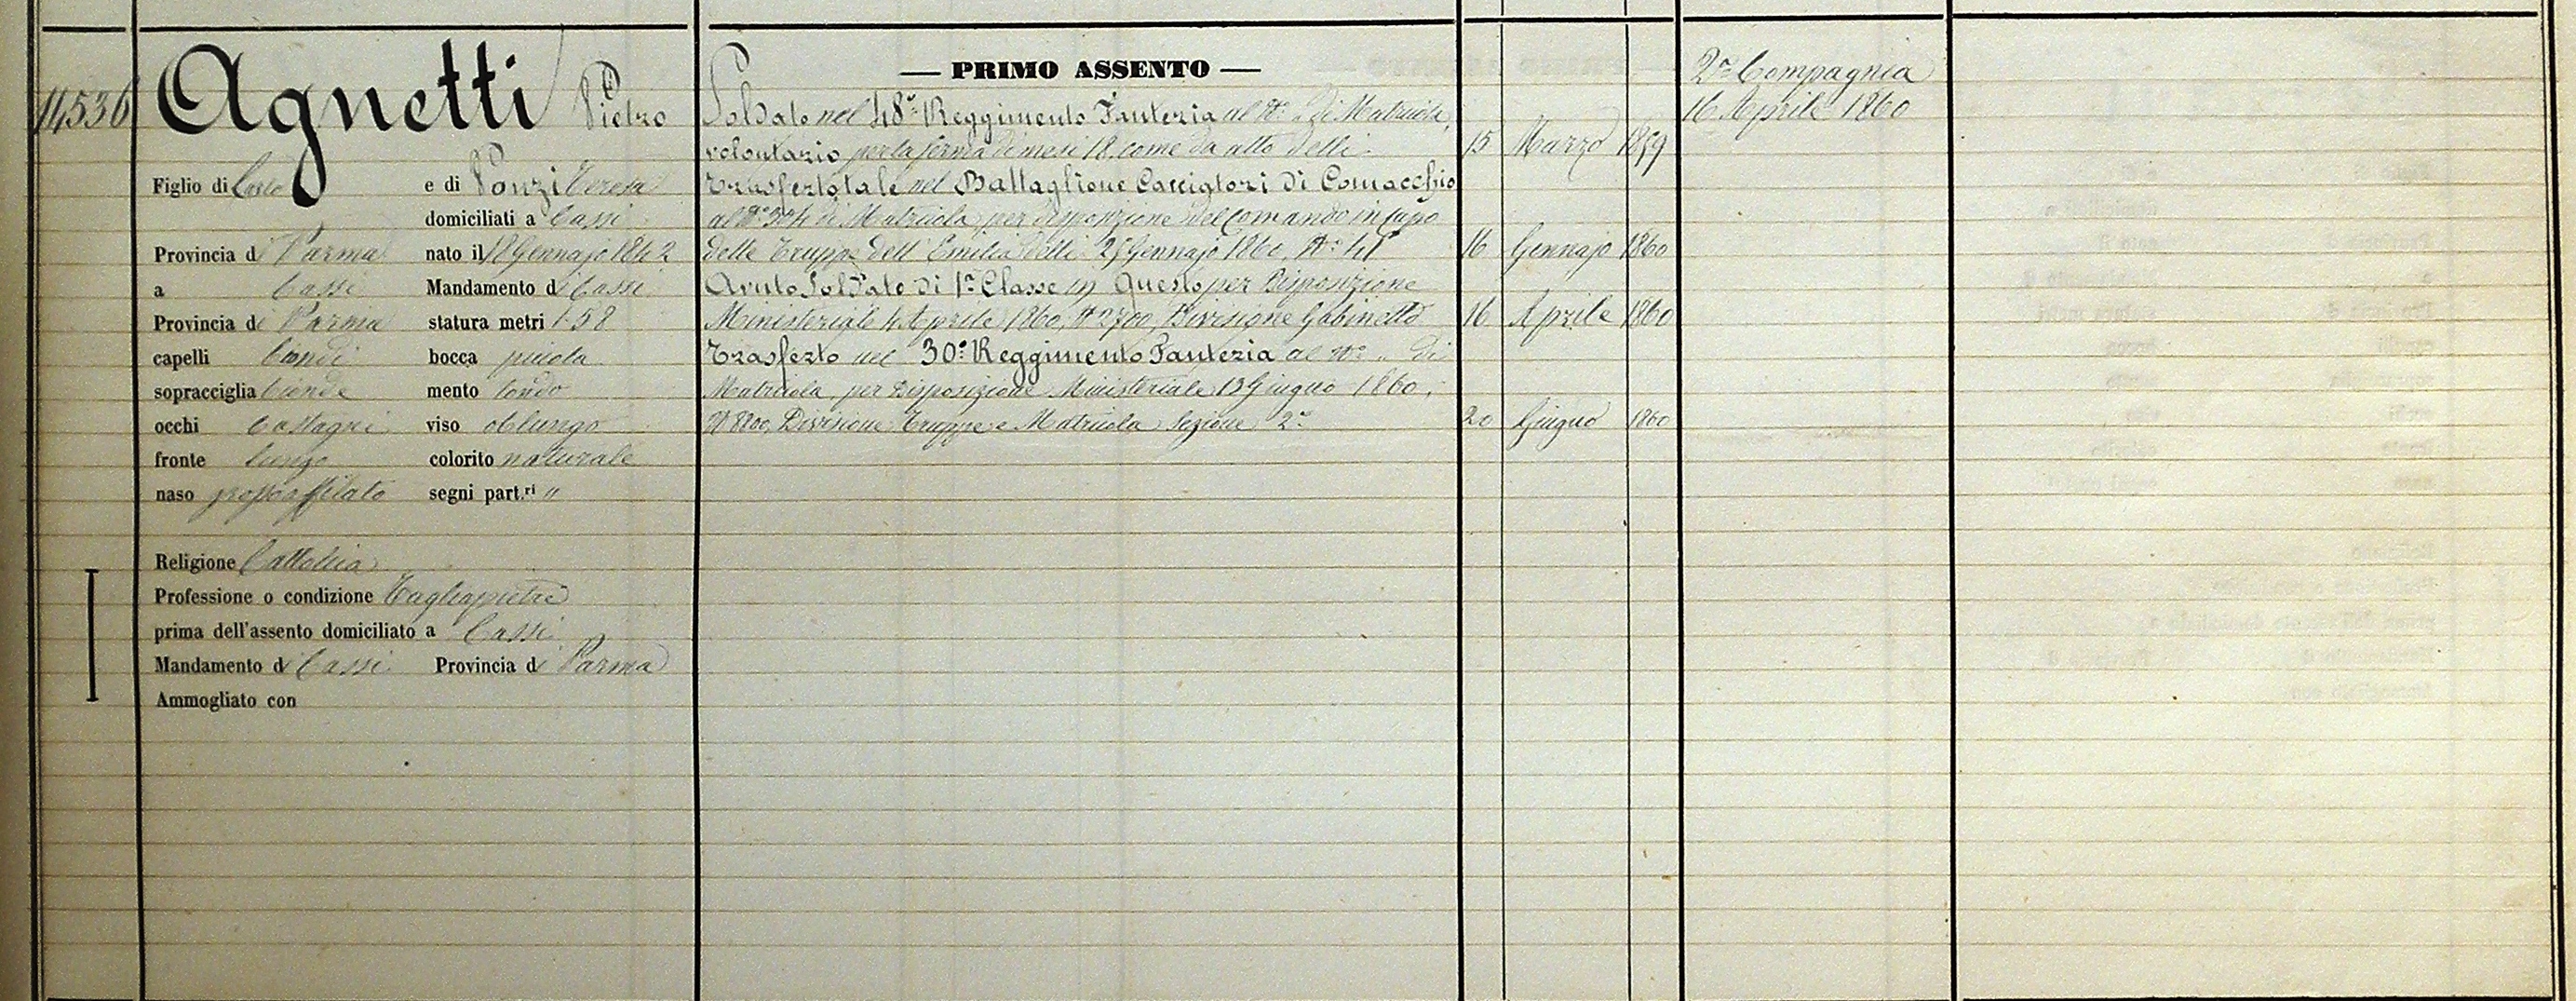 14536
Agnetti Pietro
Figlio di Carlo e di Ponzi Teresa
domiciliati a Cassi
Provincia di Parma nato il 18 Gennajo 1842
a Cassi Mandamento di Cassi
Provincia di Parma statura metri 1.58
capelli biondi bocca picola
sopracciglia bionde mento tondo
occhi Castagni viso oblungo
fronte colorito naturale
naso segni part.ri "
Religione Cattolica
Professione o condizione Tagliapietre
prima dell'assento domiciliato a Cassi
Mandamento di Cassi Provincia di Parma
Ammogliato con
— PRIMO ASSENTO —
Soldato nel 48° Reggimento Fanteria al N° " di Matricola,
volontario per la ferma di mesi 18. come da atto delli 15 Marzo 1859
Trasferto tale nel Battaglione Cacciatori di Comacchio
al N° 304 di Matricola, per disposizione del Comando in Capo
delle Truppe dell'Emilia delli 25 Gennajo 1860. N° 41 16 Gennajo 1860
Avuto Soldato di 1a Classe in Questo per Disposizione
Ministeriale 4 Aprile 1860, N 2700, Divisione Gabinetto 16 Aprile 1860
Trasferto nel 30° Reggimento Fanteria al N° " di
Matricola, per Disposizione Ministeriale 13 Giugno 1860,
N 8200, Divisione Truppe e Matricola Sezione 2a 20 Giugno 1860
2a Compagnia
16 Aprile 1860